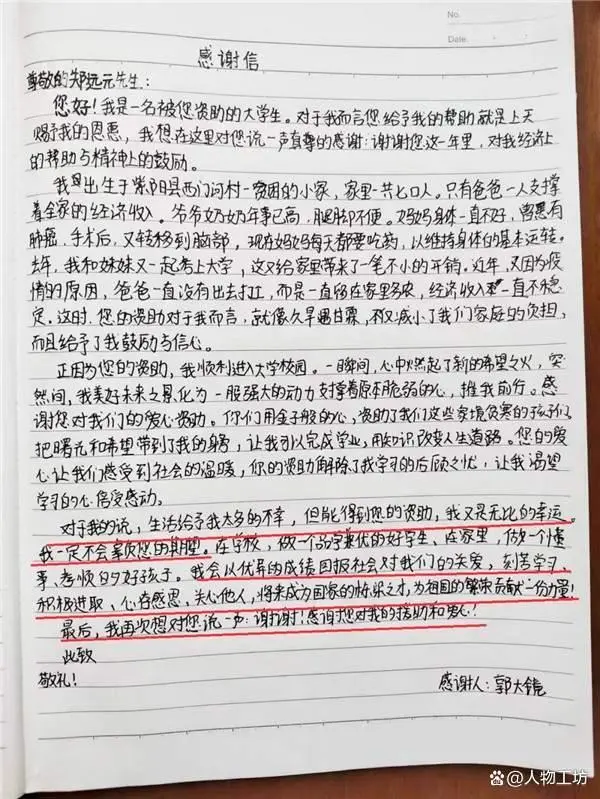 No.
Date.
感谢信
尊敬的郑远元先生:
您好!我是一名被您资助的大学生。对于我而言您给予我的帮助就是上天
赐予我的恩惠,我想在这里对您说一声真尊的感谢:谢谢您这一年里,对我经济上
的帮助与精神上的鼓励。
我是出生于紫阳县西门河村一贫困的小家,家里一共七口人。只有爸爸一人支撑
着全家的经济收入。爷爷奶奶年事已高,腿脚不便。妈妈身体一直不好,曾患有
肺癌,手术后,又转移到脑部,现在妈妈每天都要吃药,以维持身体的基本运转。
去年,我和妹妹又一起考上大学,这又给家里带来了一笔不小的开销。近年,又因为疫
情的原因,爸爸一直没有出去打工,而是一直在家里务农,经济收入一直不稳
定。这时,您的资助对于我而言,就像久旱遇甘霖,不仅减小了我们家庭的负担,
而且给予了我鼓励与信心。
正因为您的资助,我顺利进入大学校园。一瞬间,心中燃起了新的希望之火,突
然间,我美好未来之景化为一股强大的动力支撑着原本脆弱的心,推我前行。感
谢您对我们的爱心资助。你们用金子般的心,资助了我们这些家境贫寒的孩子们,
把曙光和希望带到了我的身旁,让我可以完成学业,用知识改变人生道路。您的爱
心让我们感受到社会的温暖,你的资助解除了我学习的后顾之忧,让我渴望
学习的心倍受感动。
对于我的说,生活给予我太多的不幸,但能得到您的资助,我又是无比的幸运。
我一定不会辜负您的期望。在学校,做一个品学兼优的好学生、在家里,做一个懂
事、孝顺的好孩子。我会以优异的成绩回报社会对我们的关爱,刻苦学习、
积极进取、心存感恩,关心他人,将来成为国家的栋梁之才,为祖国的繁荣贡献一份力量!
最后,我再次想对您说一声:谢谢!感谢您对我的援助和爱心!
此致
敬礼!
感谢人:郭大镜
人物工坊